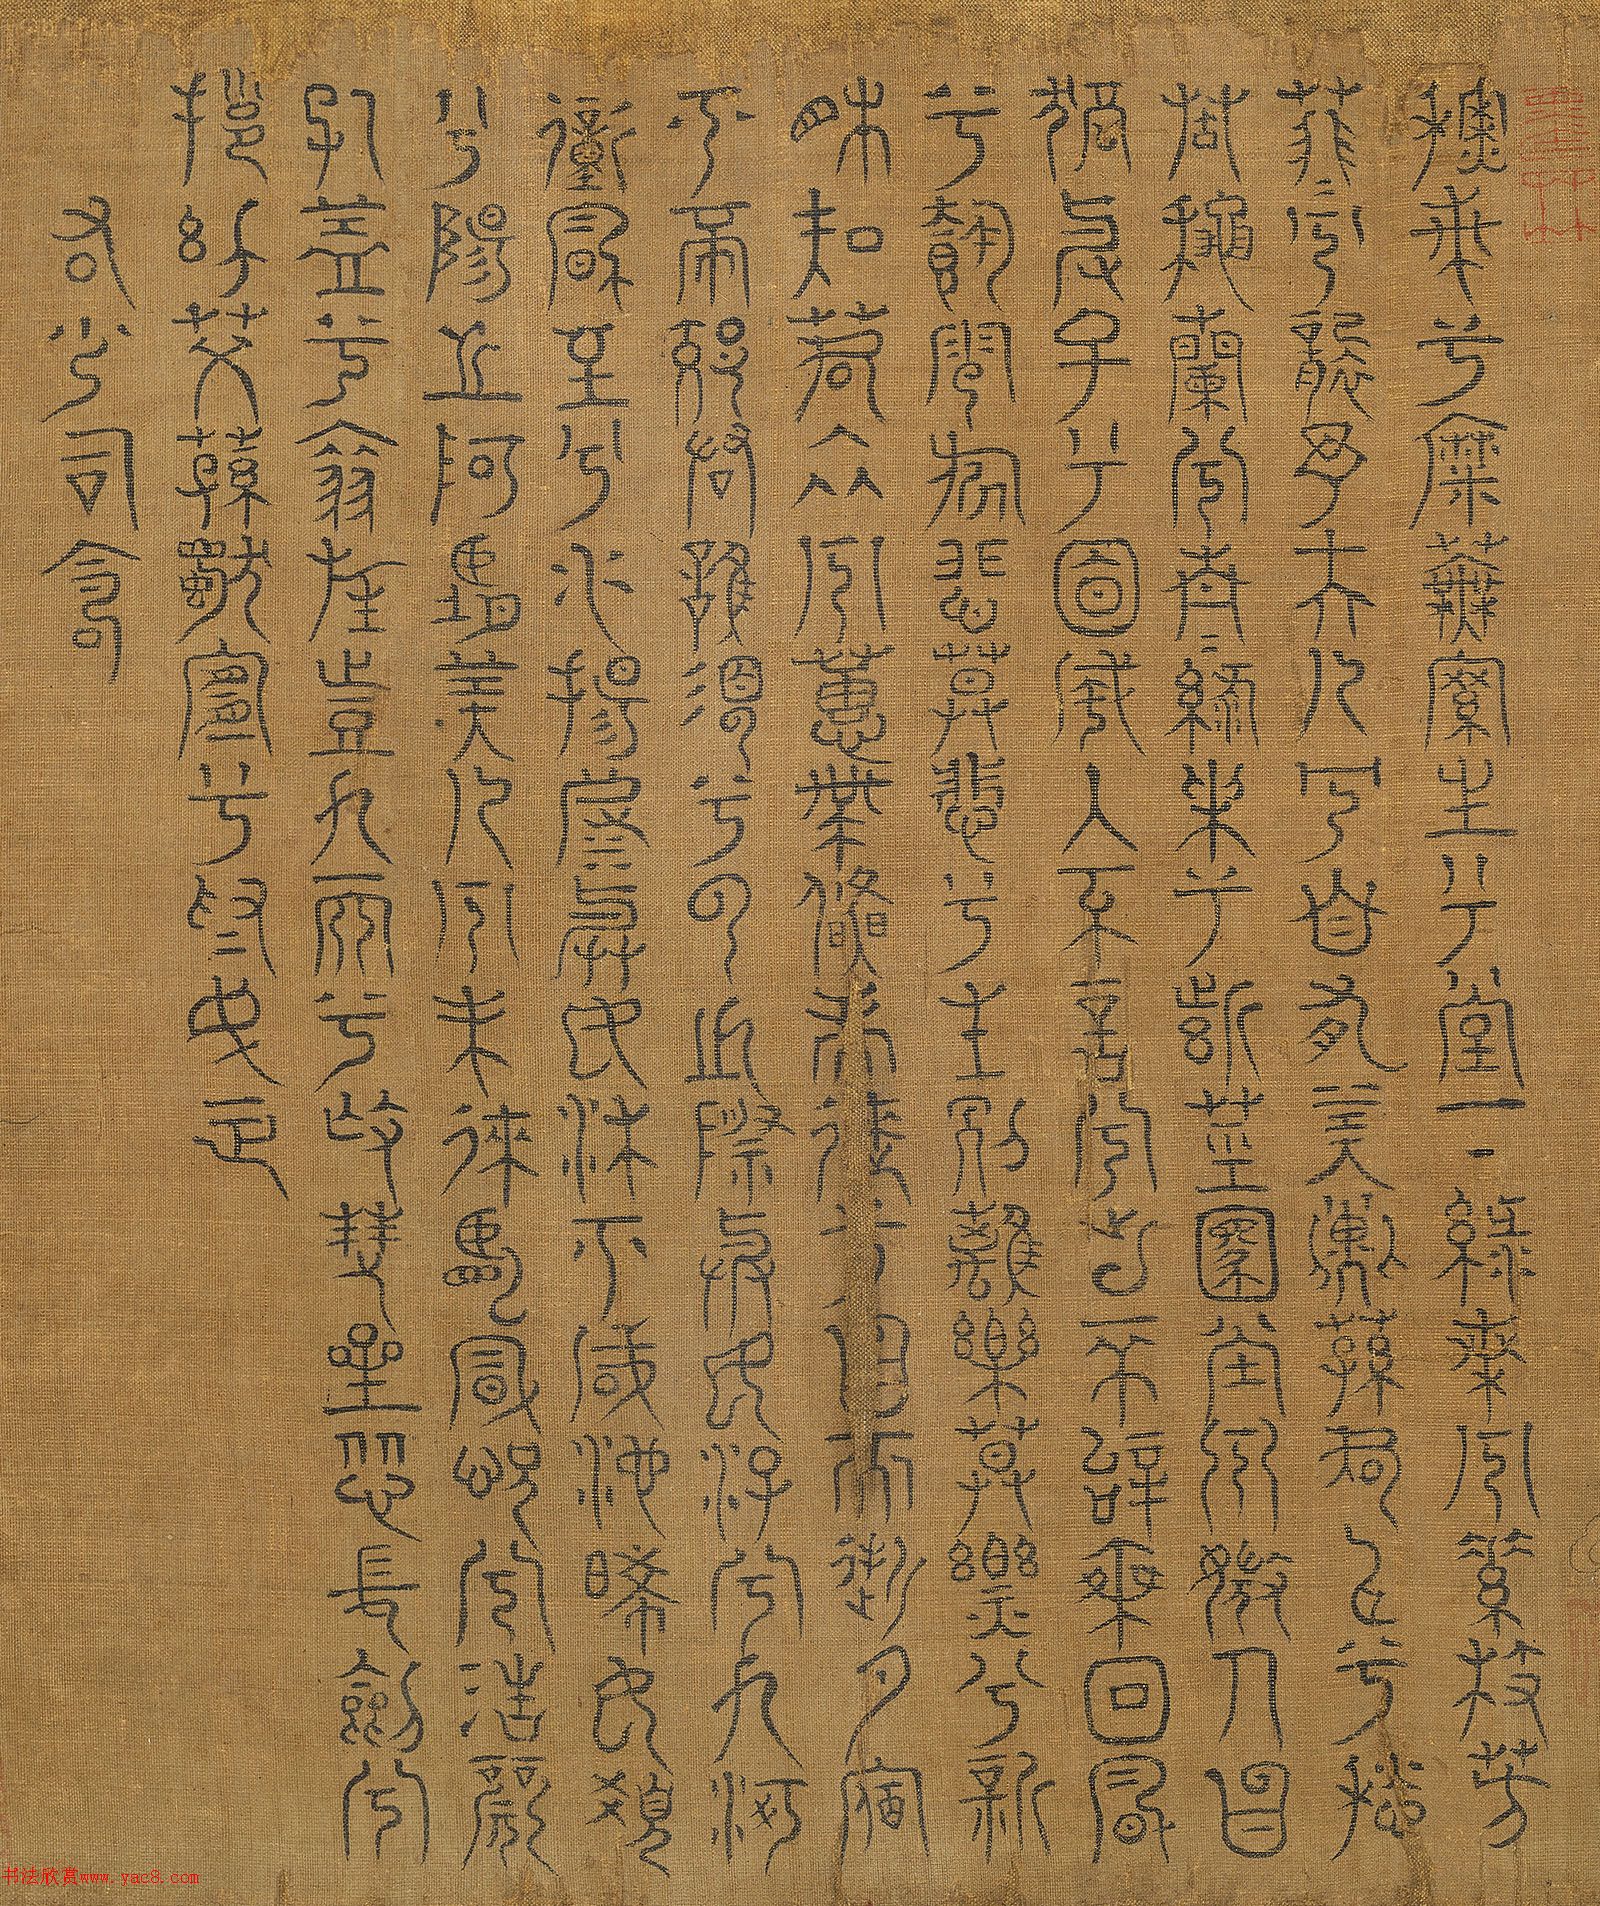 秋蘭兮麋蕪羅生兮堂下綠葉兮素枝芳
菲=兮襲予夫人兮自有美子蓀何以兮愁
苦秋蘭兮青=綠葉兮紫莖滿堂兮美人忽
獨與余兮目成入不言兮出不辭乘回風
兮載雲旗悲莫悲兮生別離樂莫樂兮新
相知荷衣兮蕙帶儵而來兮忽而逝夕宿
兮帝郊君誰須兮雲之際與女游兮九河
衝風至兮水揚波與女沐兮咸池晞女髮
兮陽之阿望美人兮未徠臨風怳兮浩歌
孔蓋兮翠旌登九天兮撫彗星竦長劍兮
擁幼艾蓀獨宜兮為民正
右少司命
书法欣赏www.yac8.com